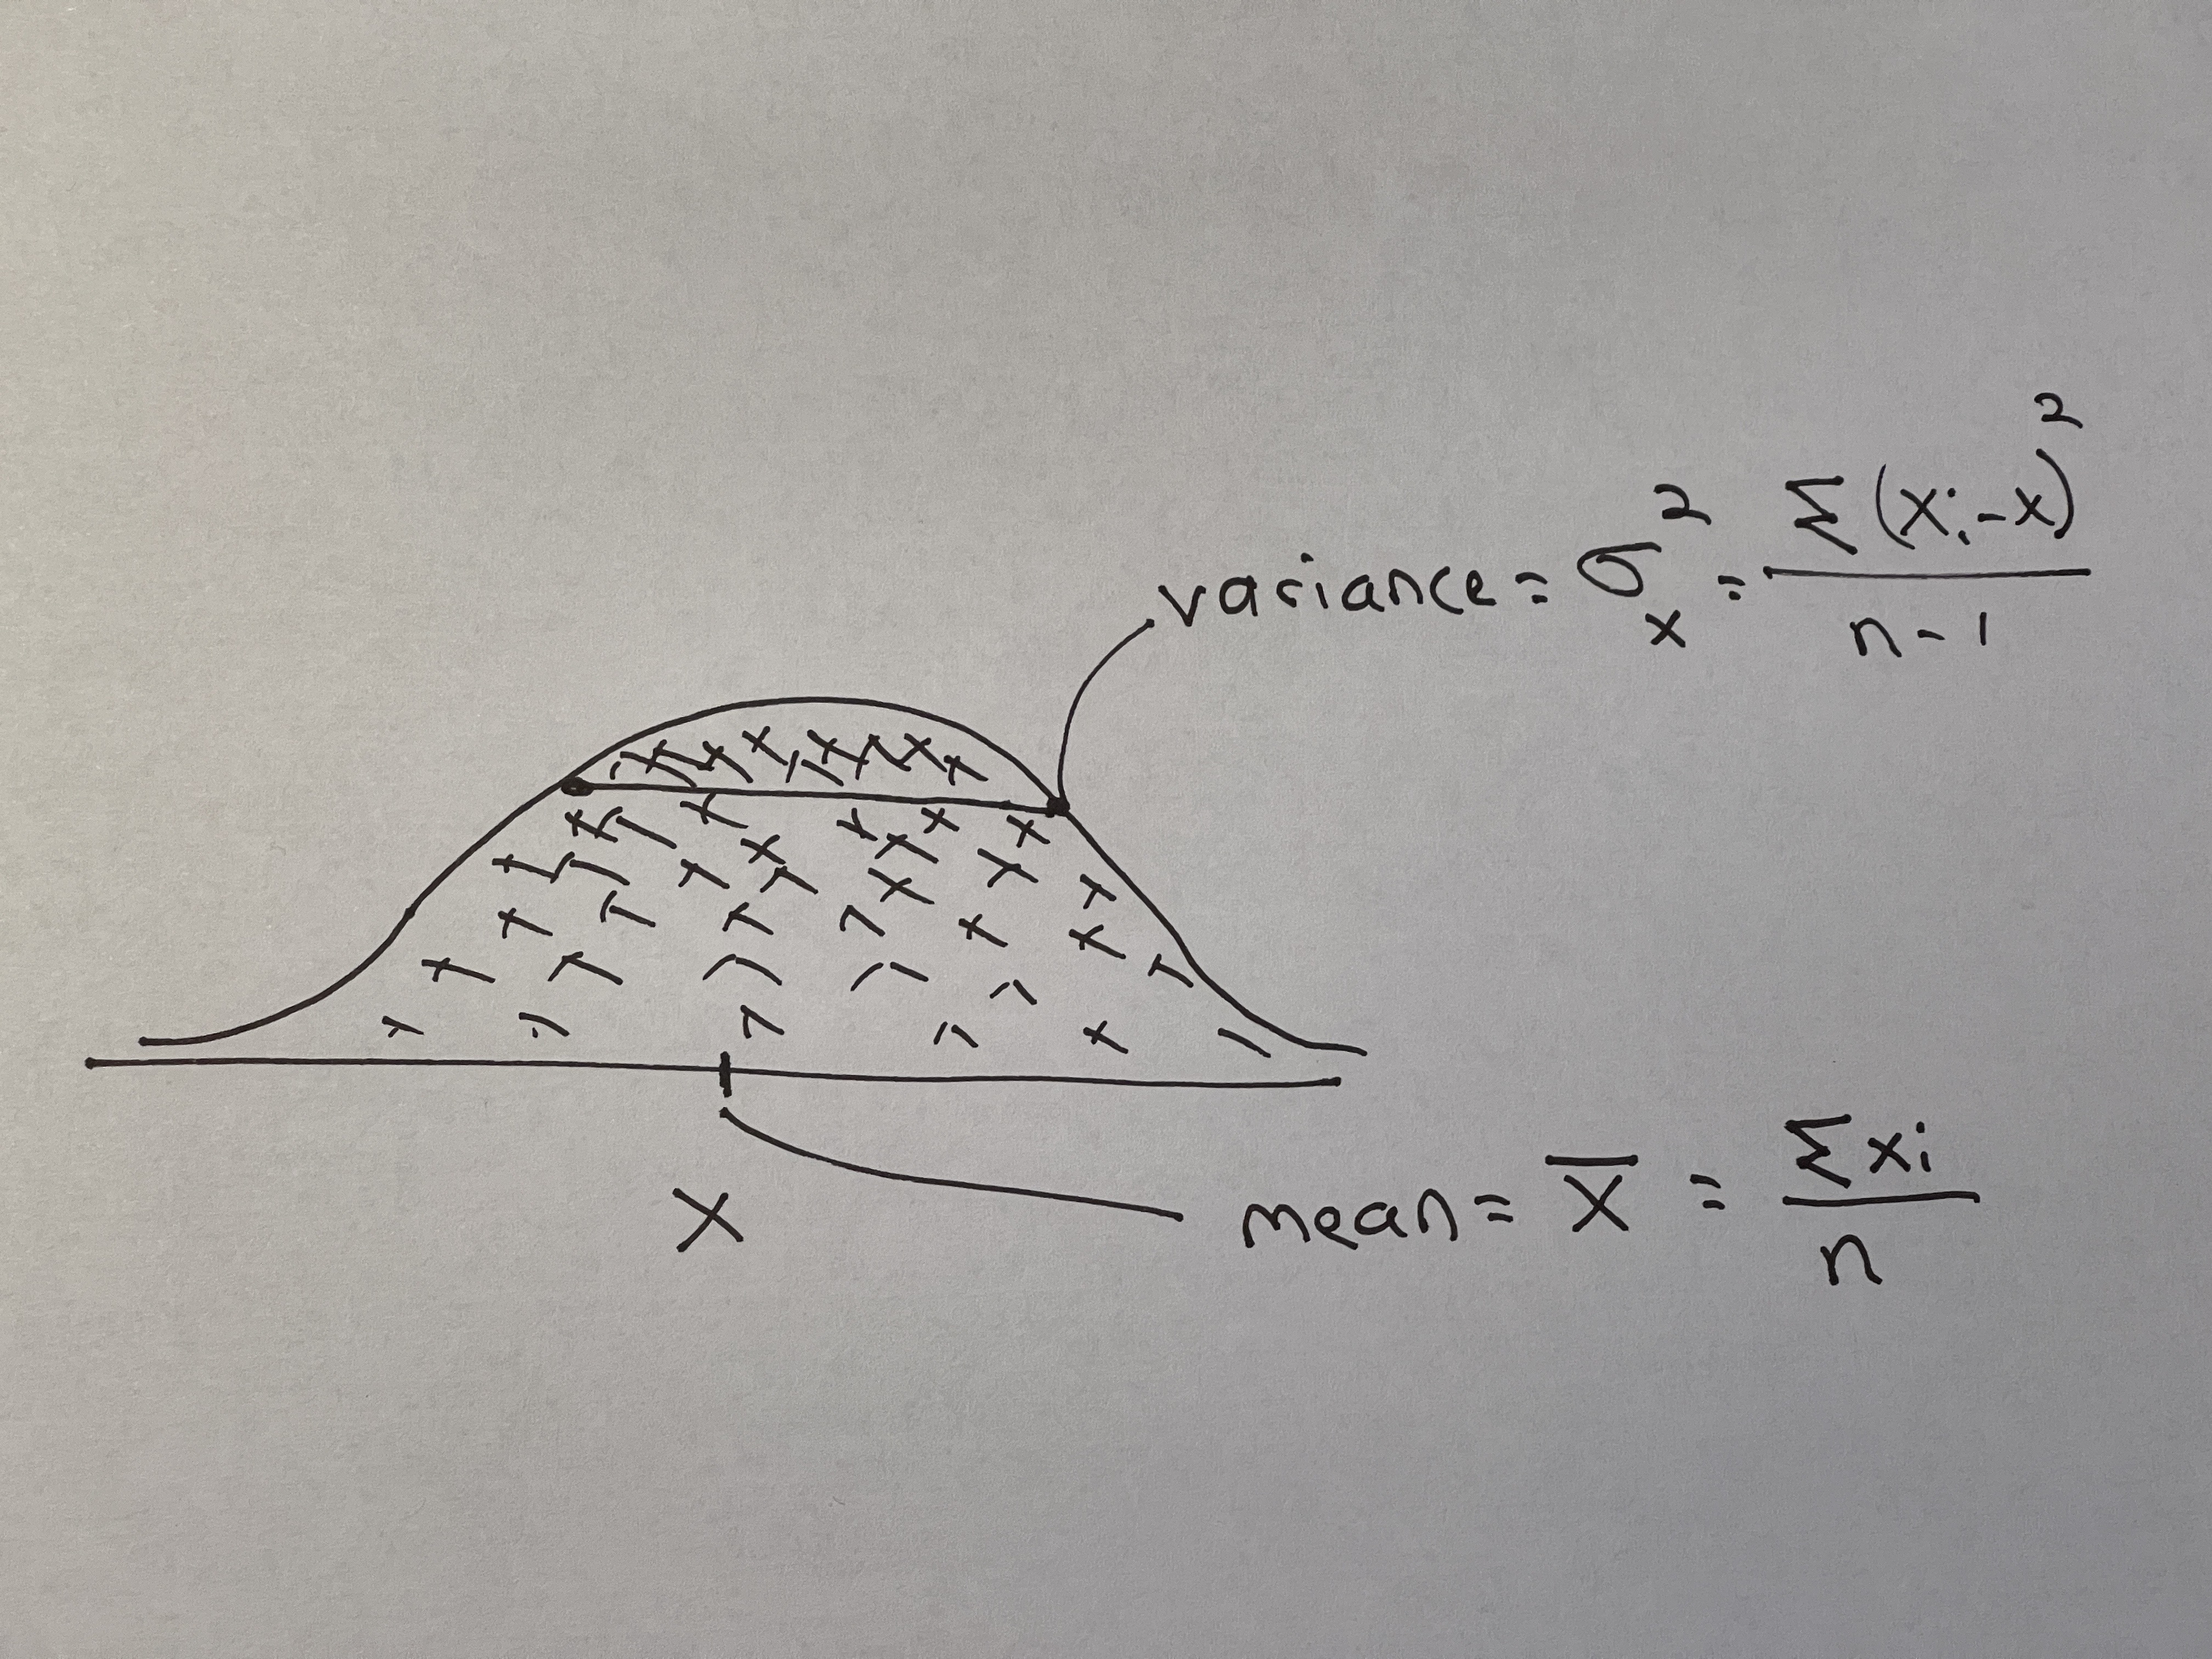 variance = σ²ₓ = Σ(xᵢ-x)² / n-1
X
mean = X̄ = Σxi / n